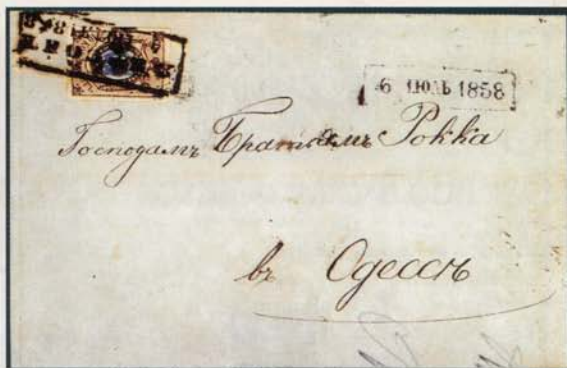 6 ІЮЛЬ 1858
Господамъ Братьямъ Рокка
въ Одессѣ